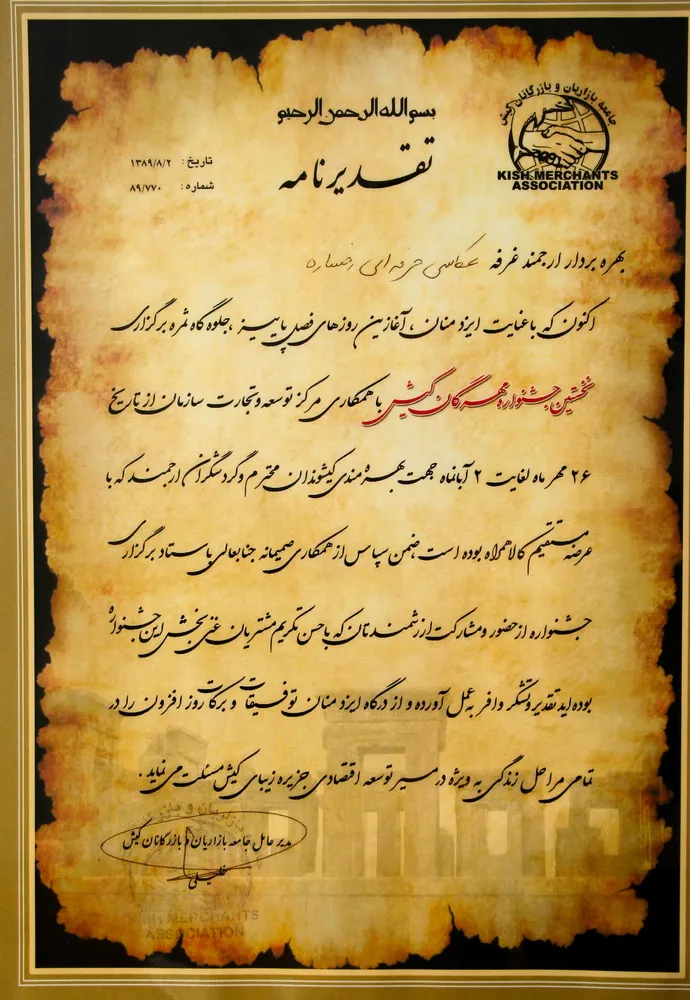 بسم الله الرحمن الرحیم
جامعه بازاریان و بازرگانان کیش
KISH MERCHANTS
ASSOCIATION
تقدیرنامه
تاریخ: ۱۳۸۹/۸/۲
شماره: ۸۹/۷۷۰
بهره بردار ارجمند غرفه عکاسی حرفه ای رخساره
اکنون که با عنایت ایزد منان، آغازین روزهای فصل پاییز، جلوه گاه ثمره برگزاری
نخستین جشنواره مهرگان کیش با همکاری مرکز توسعه و تجارت سازمان از تاریخ
۲۶ مهر ماه لغایت ۲ آبانماه جهت بهره مندی کیشوندان محترم و گردشگران ارجمند که با
عرضه مستقیم کالا همراه بوده است، ضمن سپاس از همکاری صمیمانه جنابعالی با ستاد برگزاری
جشنواره از حضور و مشارکت ارزشمندتان که با حسن تکریم مشتریان غنی بخش این جشنواره
بوده اید تقدیر و تشکر وافر به عمل آورده و از درگاه ایزد منان توفیقات و برکات روز افزون را در
تمامی مراحل زندگی به ویژه در مسیر توسعه اقتصادی جزیره زیبای کیش مسئلت می نماید.
مدیر عامل جامعه بازاریان و بازرگانان کیش
خلیلی
KISH MERCHANTS
ASSOCIATION